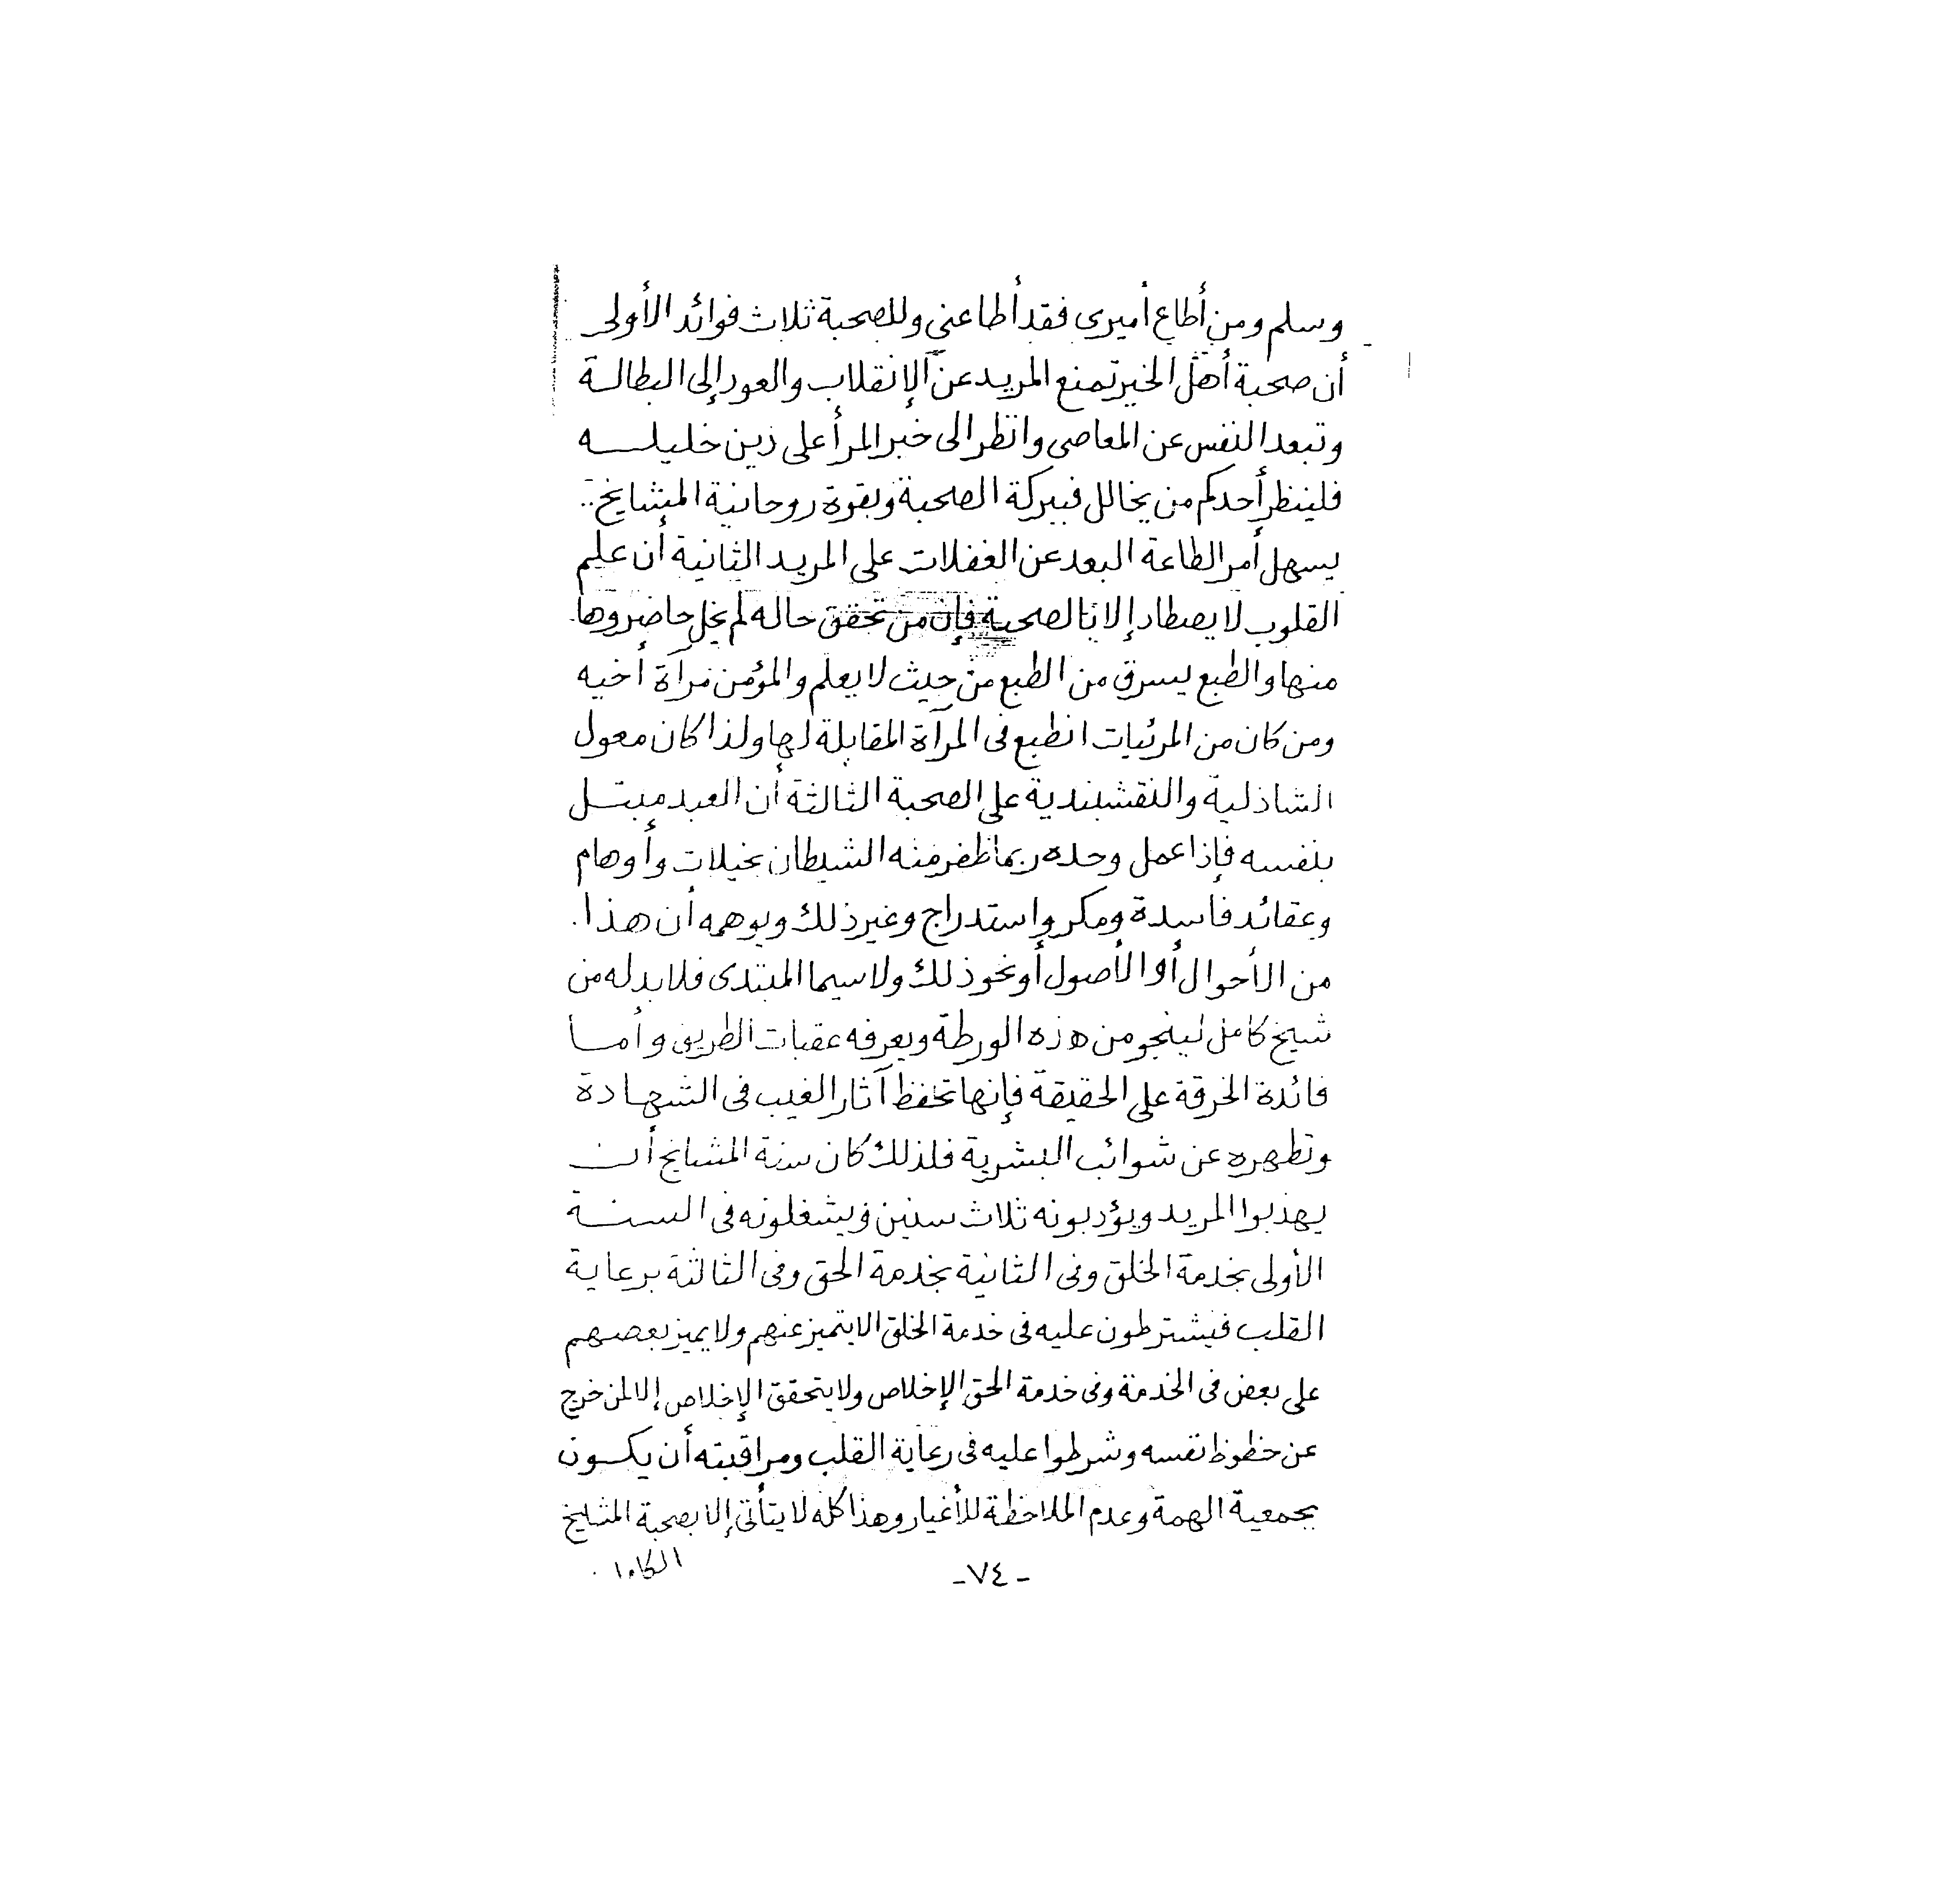 وسلم ومن أطاع أميرى فقد أطاعني وللصحبة ثلاث فوائد الأولى
أن صحبة أهل الخير تمنع المريد عن الإنقلاب والعود إلى البطالة
وتبعد النفس عن المعاصى وانظر الى خبر المرأ على دين خليله
فلينظر أحدكم من يخالل فببركة الصحبة وبقوة روحانية المشايخ
يسهل أمر الطاعة البعد عن الغفلات على المريد الثانية أن علم
القلوب لا يصطاد إلا بالصحبة فإن من تحقق حاله لم يخل حاضروها
منها والطبع يسرق من الطبع من حيث لا يعلم والمؤمن مرآة أخيه
ومن كان من المرئيات انطبع فى المرآة المقابلة لها ولذا كان معول
الشاذلية والنقشبندية على الصحبة الثالثة أن العبد مبتل
بنفسه فإذا عمل وحده ربما ظفر منه الشيطان بخيلات وأوهام
وعقائد فاسدة ومكر واستدراج وغير ذلك ويوهمه أن هذا
من الأحوال أو الأصول أو نحو ذلك ولا سيما المبتدى فلا بد له من
شيخ كامل لينجو من هذه الورطة ويعرفه عقبات الطريق وأما
فائدة الخرقة على الحقيقة فإنها تحفظ آثار الغيب فى الشهادة
وتطهره عن شوائب البشرية فلذلك كان سنة المشايخ أن
يهذبوا المريد ويؤدبونه ثلاث سنين ويشغلونه فى السنة
الأولى بخدمة الخلق وفى الثانية بخدمة الحق وفى الثالثة برعاية
القلب فيشترطون عليه فى خدمة الخلق الا يتميز عنهم ولا يميز بعضهم
على بعض فى الخدمة وفى خدمة الحق الإخلاص ولا يتحقق الإخلاص إلا لمن خرج
عن حظوظ نفسه وشرطوا عليه فى رعاية القلب ومراقبته أن يكون
بجمعية الهمة وعدم الملاحظة للأغيار وهذا كله لا يتأتى إلا بصحبة المشايخ
- ٧٤ -